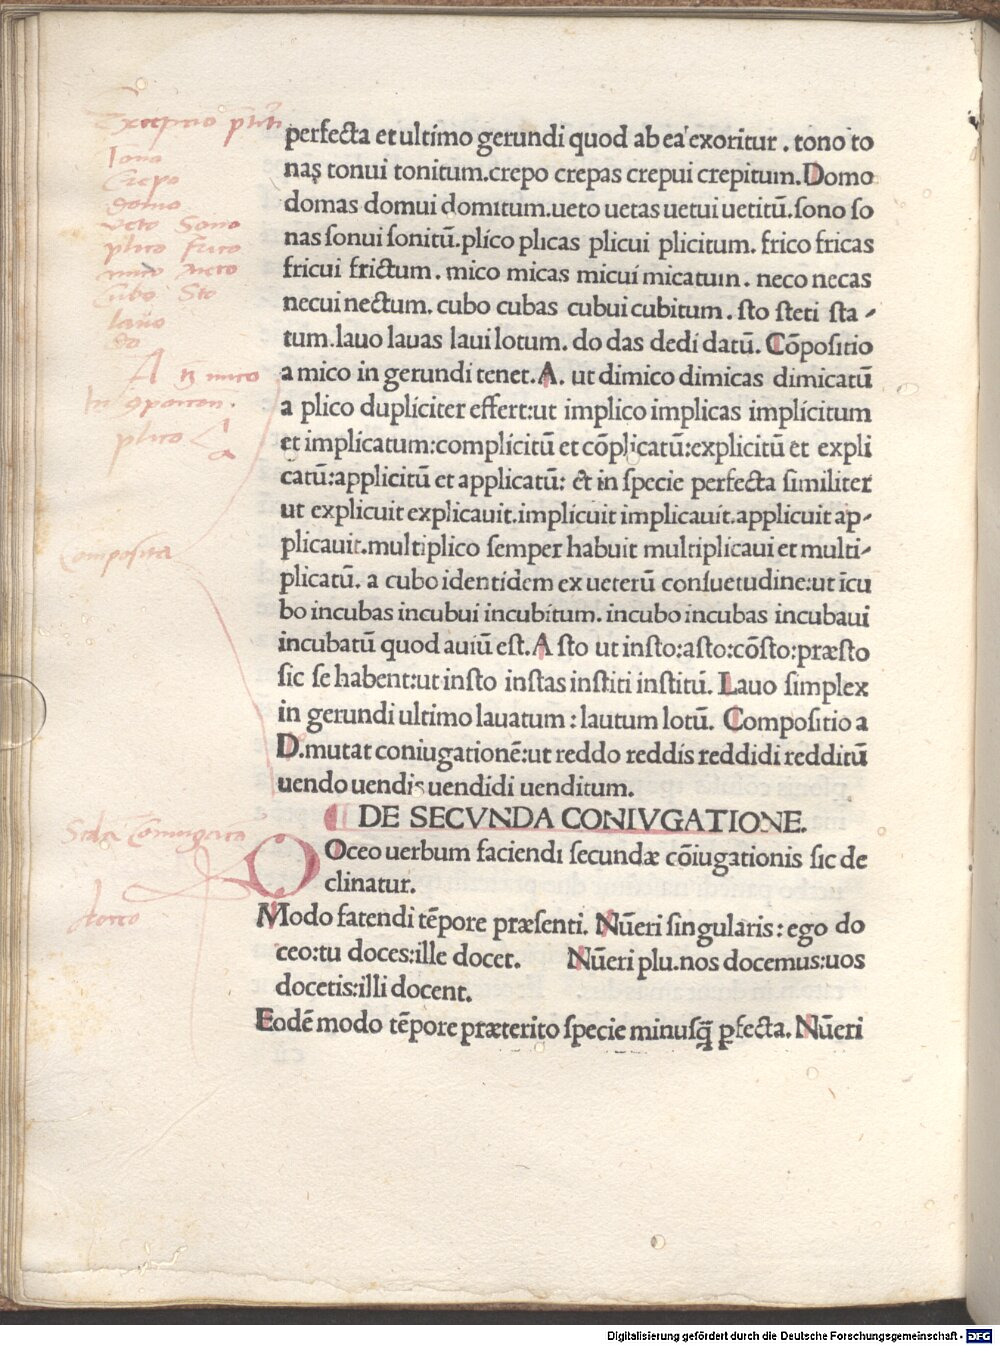 Exceptio p̄teriti
Tono
Crepo
domo
Veto Sono
plico Frico
mico neco
Cubo Sto
lauo
do
A mico
In
plico
a
Composita
Scda Coniugatio
doceo
perfecta et ultimo gerundi quod ab ea exoritur . tono to
nas tonui tonitum.crepo crepas crepui crepitum.Domo
domas domui domitum.ueto uetas uetui uetitū.ſono ſo
nas ſonui ſonitū.plico plicas plicui plicitum. frico fricas
fricui frictum . mico micas micui micatum . neco necas
necui nectum. cubo cubas cubui cubitum . ſto ſteti ſta-
tum.lauo lauas laui lotum. do das dedi datū. Cōpoſitio
a mico in gerundi tenet.A. ut dimico dimicas dimicatū
a plico dupliciter effert:ut implico implicas implicitum
et implicatum:complicitū et cōplicatū:explicitū et expli
catū:applicitū et applicatū: et in ſpecie perfecta ſimiliter
ut explicuit explicauit.implicuit implicauit.applicuit ap-
plicauit.multiplico ſemper habuit multiplicaui et multi-
plicatū. a cubo identidem ex ueterū conſuetudine:ut īcu
bo incubas incubui incubitum. incubo incubas incubaui
incubatū quod auiū eſt.A ſto ut inſto:aſto:cōſto:præſto
ſic ſe habent:ut inſto inſtas inſtiti inſtitū. Lauo ſimplex
in gerundi ultimo lauatum : lautum lotū. Compoſitio a
D.mutat coniugationē:ut reddo reddis reddidi redditū
uendo uendis uendidi uenditum.
DE SECVNDA CONIVGATIONE.
DOceo uerbum faciendi ſecundæ cōiugationis ſic de
clinatur.
Modo fatendi tēpore præſenti. Nūeri ſingularis : ego do
ceo:tu doces:ille docet. Nūeri plu.nos docemus:uos
docetis:illi docent.
Eodē modo tēpore præterito ſpecie minuſq̄ ꝑfecta. Nūeri
Digitalisierung gefördert durch die Deutsche Forschungsgemeinschaft - DFG